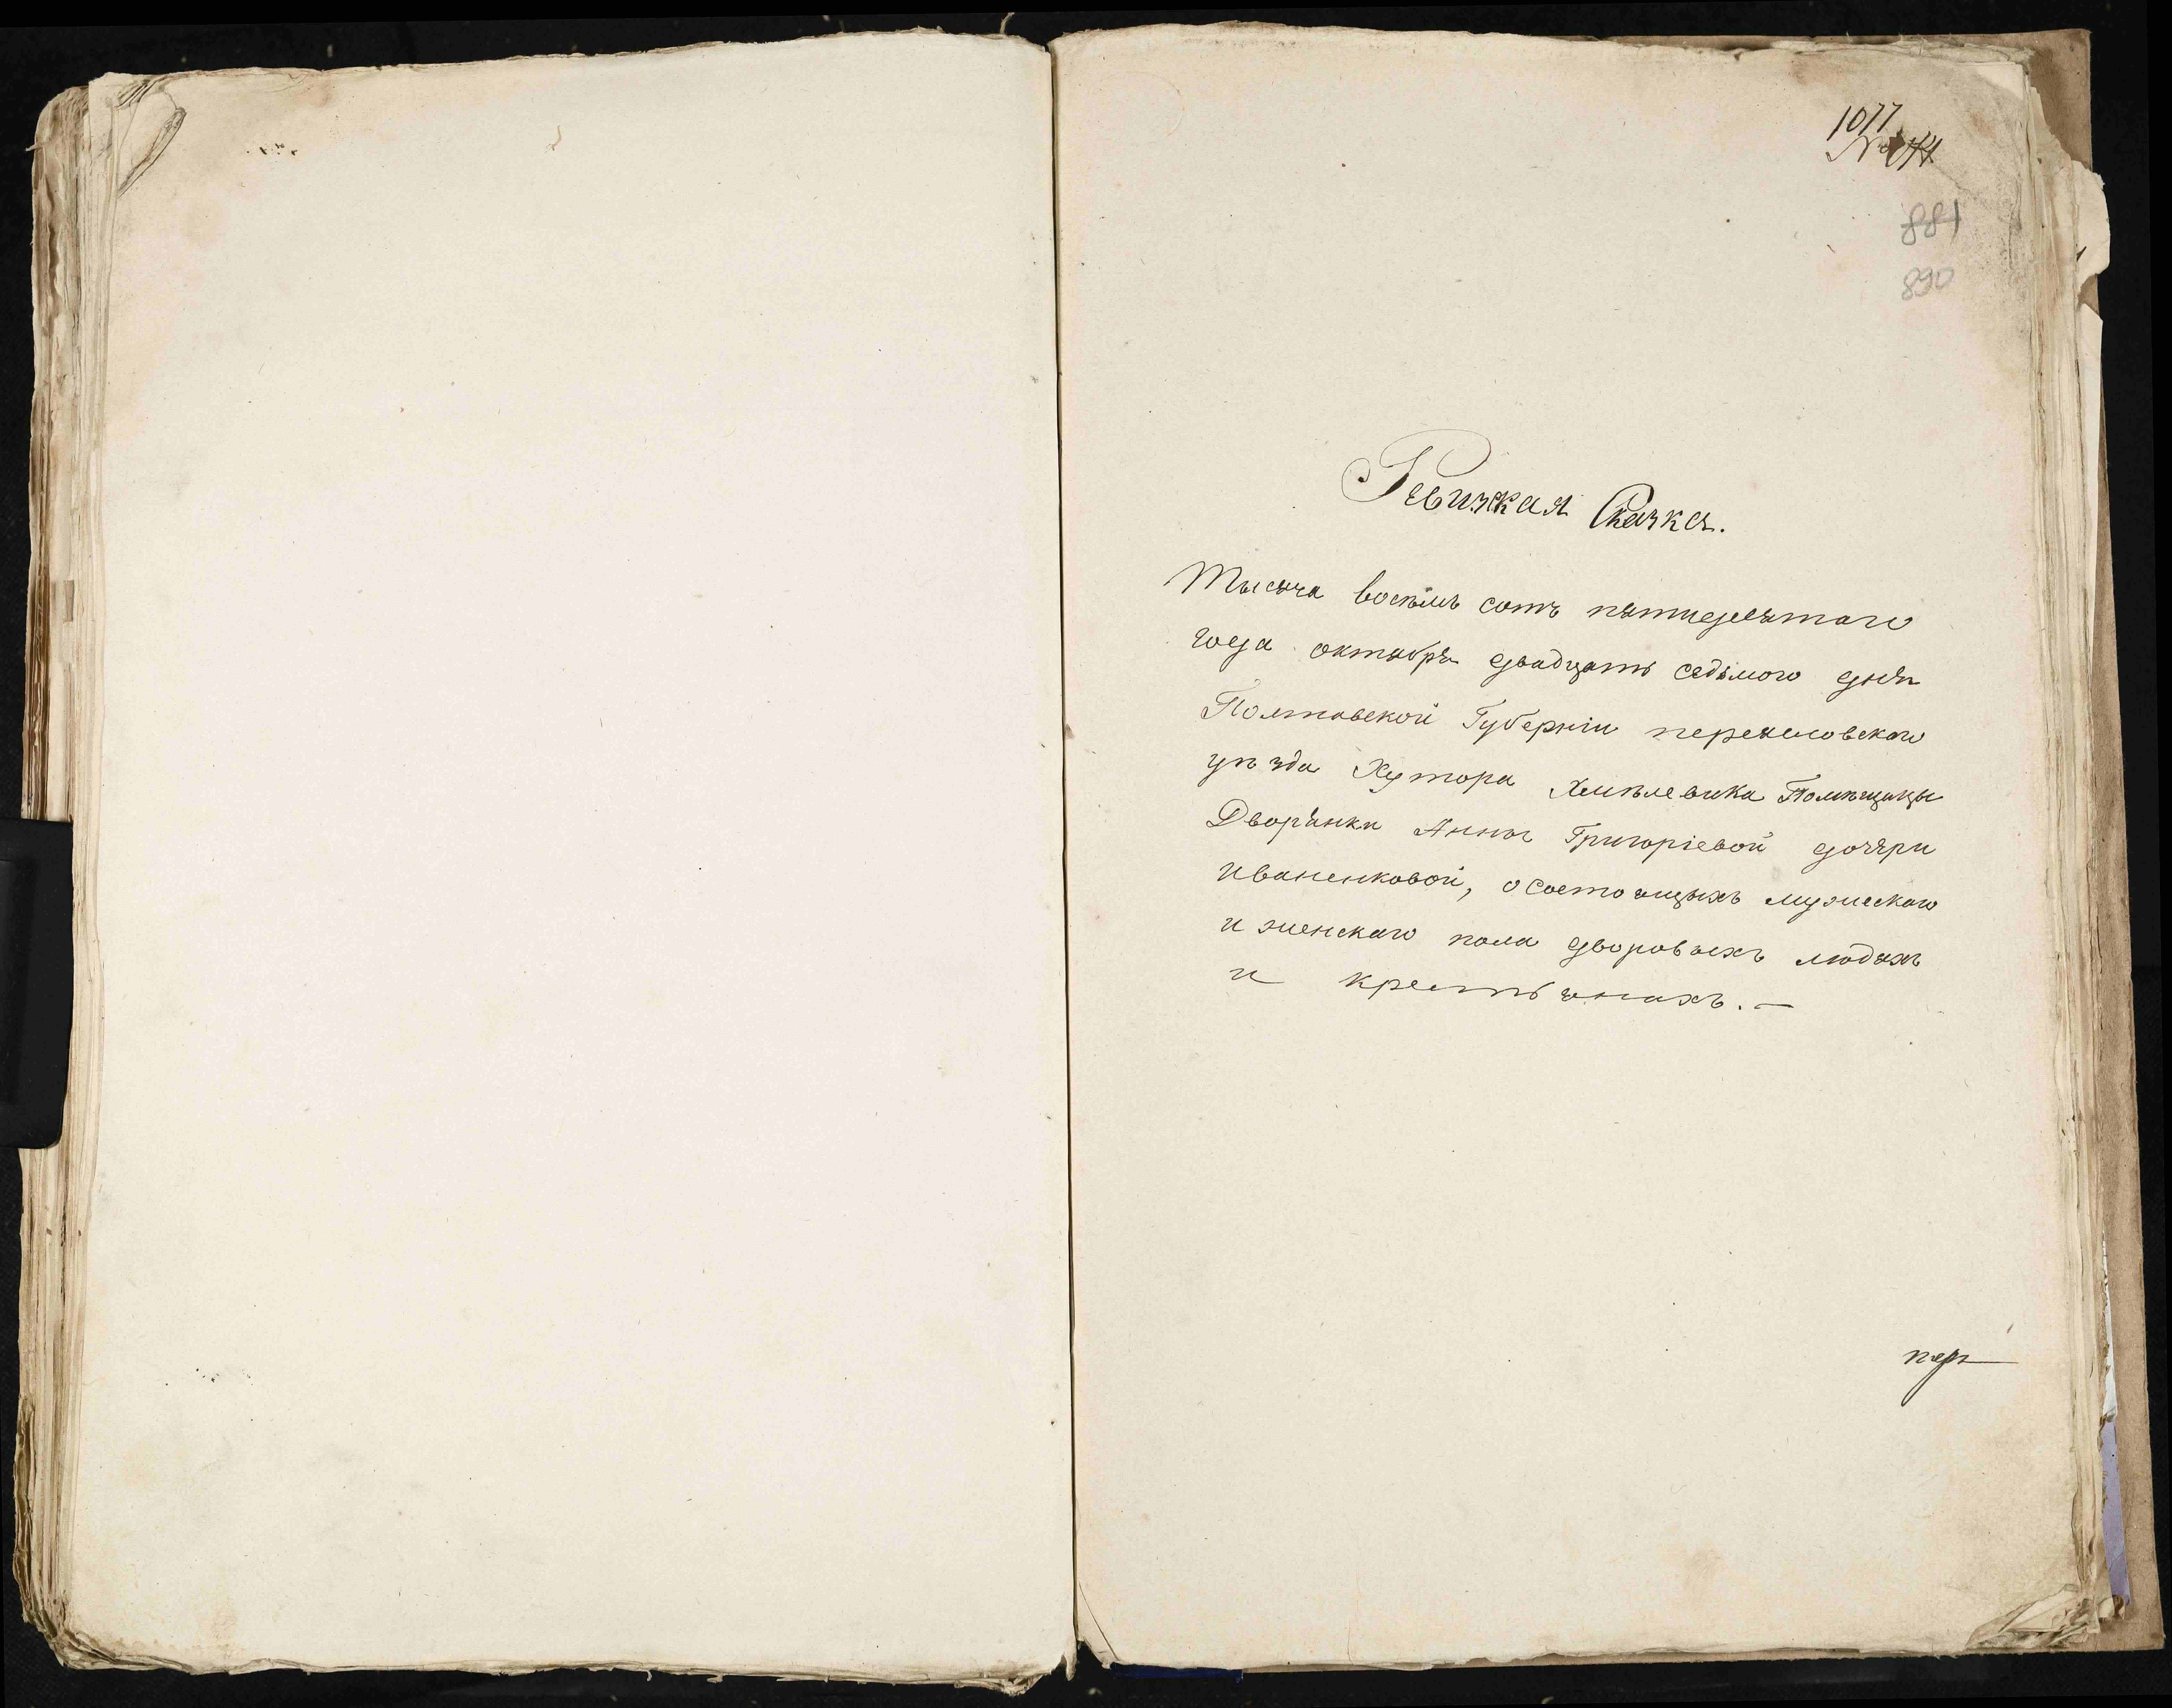 1077
№
881
890
Ревизкая Сказка.
Тысяча восѣмь сотъ пятидесятаго
года октября двадцать седьмого дня
Полтавской Губерніи переяловскаго
уѣзда Хутора Хмѣлевика Помѣщицы
Дворянки Анны Григоріевой дочери
Иваненковой, о состоящихъ мужескаго
и женскаго пола дворовыхъ людяхъ
и крестьянахъ. —